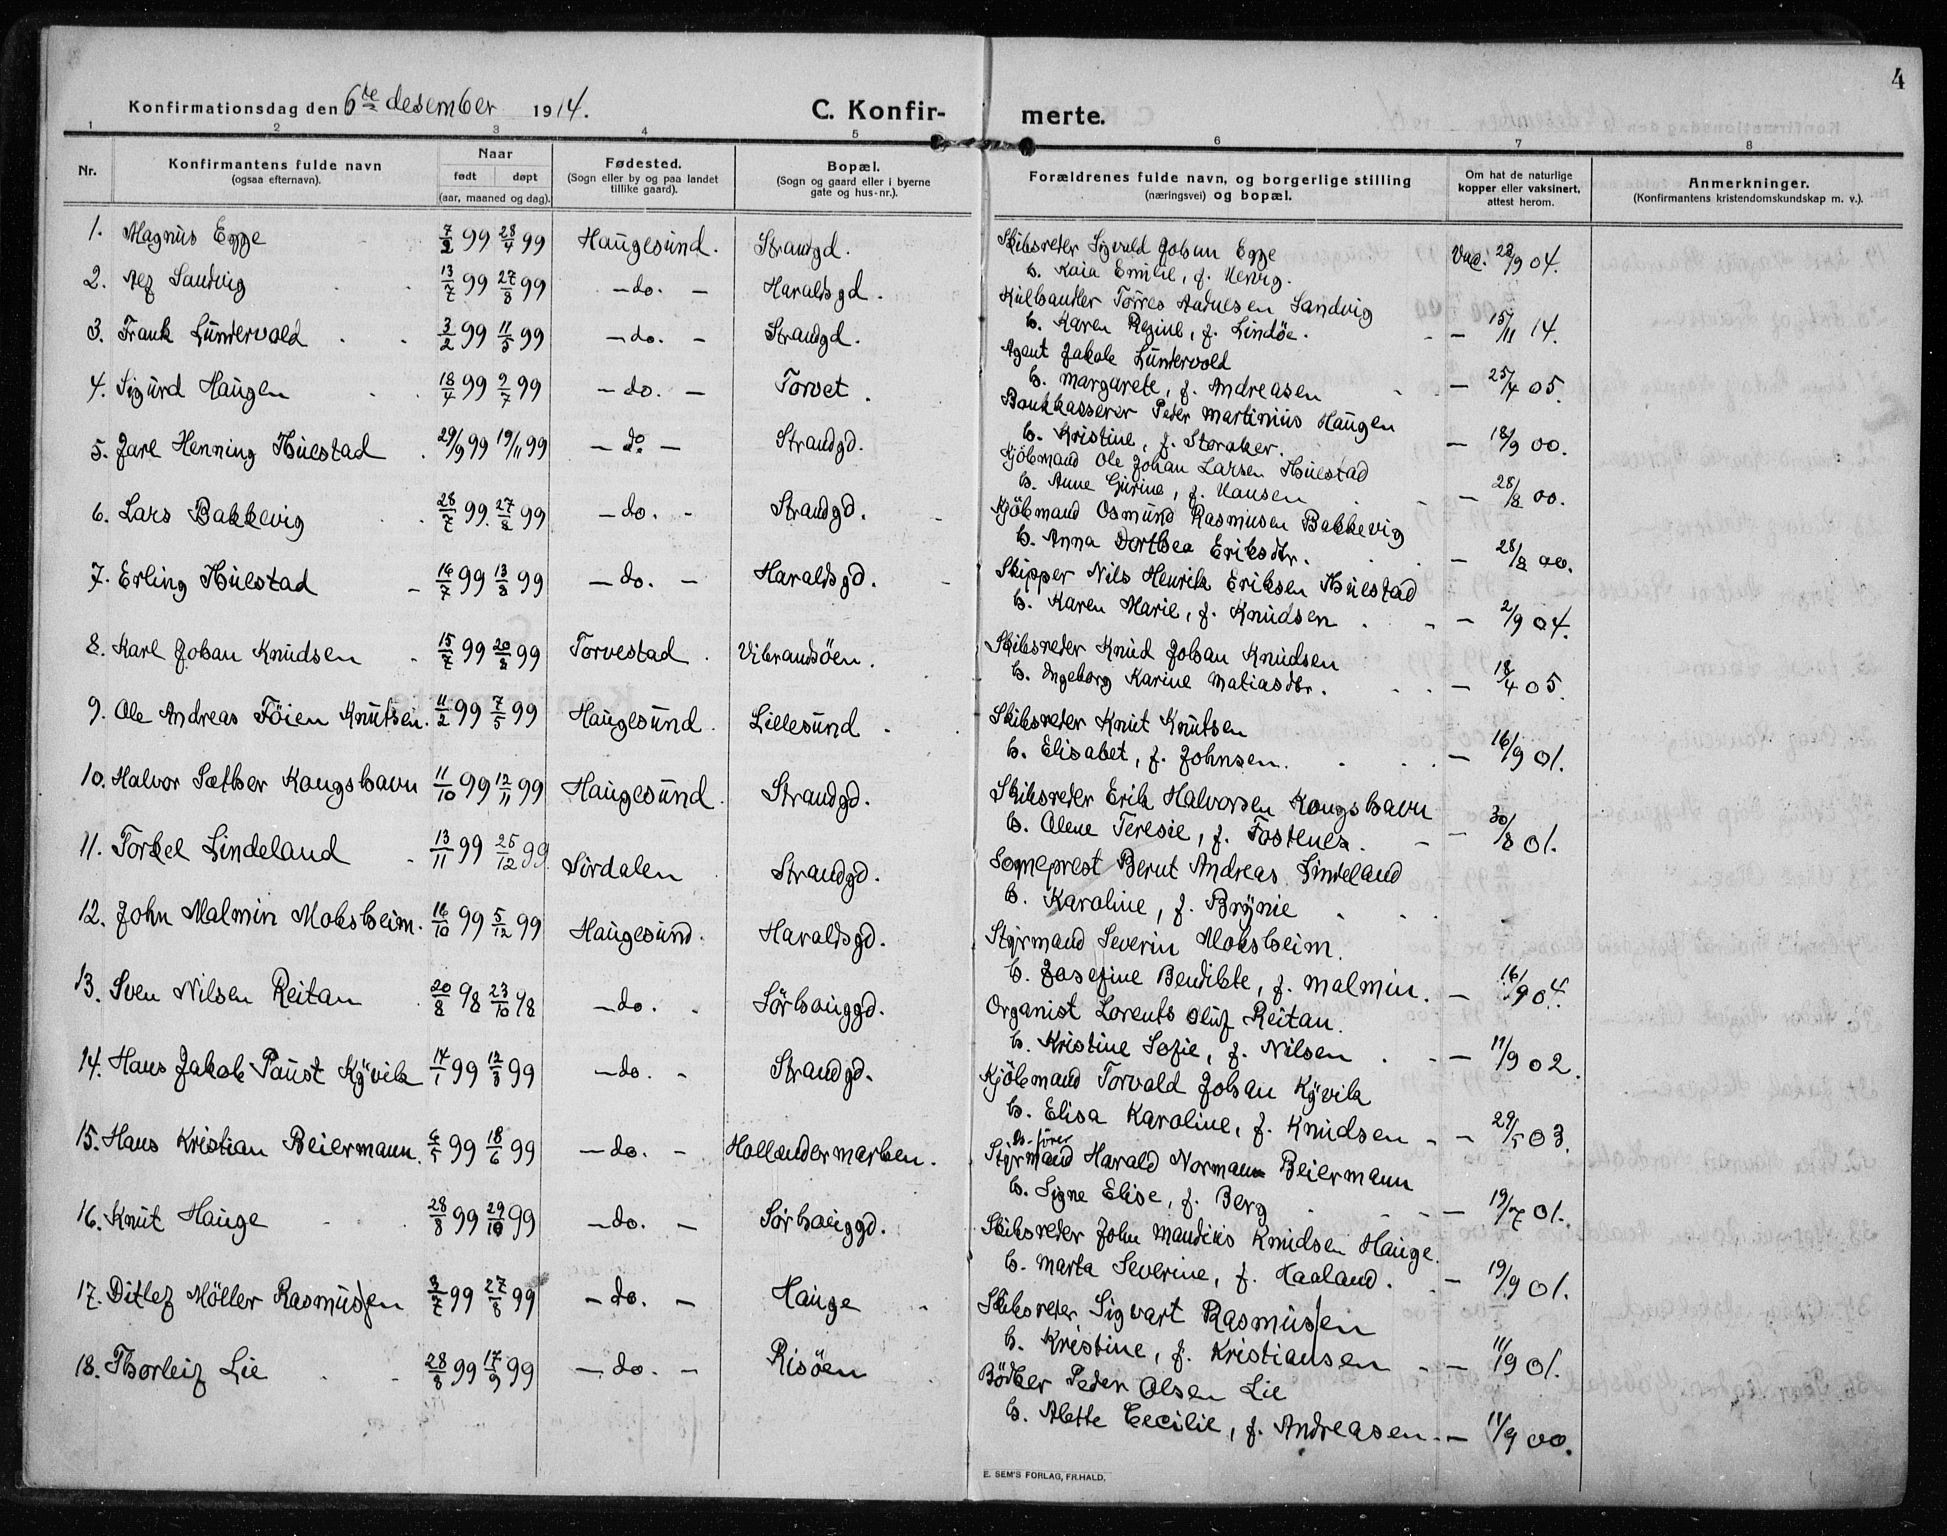 4
Konfirmationsdag den 6te desember 1914.
C. Konfirmerte.
1 2 3 4 5 6 7 8
Nr.
Konfirmantens fulde navn
(ogsaa efternavn).
Naar
født døpt
(aar, maaned og dag).
Fødested.
(Sogn eller by og paa landet
tillike gaard).
Bopæl.
(Sogn og gaard eller i byerne
gate og hus-nr.).
Forældrenes fulde navn, og borgerlige stilling
(næringsvei) og bopæl.
Om hat de naturlige
kopper eller vaksinert,
attest herom.
Anmerkninger.
(Konfirmantens kristendomskundskap m. v.).
1. Magnus Egge 7/2 99 28/4 99 Haugesund. Strandgd. Skibsreder Sigvald Johan Egge
h. Kaia Emilie, f. Vac. 28/9 04.
2. Alf Sandvig 13/7 99 27/8 99 – do. – Haraldsgd. Kulhandler Torres Sandvig
h. Karen Regine, f. Lindøe. – 15/11 14.
3. Frank Lundervold 3/2 99 11/5 99 – do. – Strandgd. Agent Jakob Lundervold
h. Margarete, f. Andreasen – 25/4 05.
4. Sigurd Haugen 18/4 99 9/7 99 – do. – Torvet. Bankkasserer Peder Martinius Haugen
h. Kristine, f. Storaker. – 18/9 00.
5. Jarl Henning Huestad 29/9 99 19/11 99 – do. – Strandgd. Kjöbmand Ole Johan Larsen Huestad
h. Anne Gurine, f. Hansen – 28/8 00.
6. Lars Bakkevig 28/7 99. 27/8 99 – do. – Strandgd. Kjöbmand Osmund Rasmusen Bakkevig
h. Anna Dorthea Eriksdtr. – 28/8 00.
7. Erling Huestad 16/7 99 13/8 99 – do. – Haraldsgd. Skipper Nils Henrik Eriksen Huestad
h. Karen Marie, f. Knudsen – 2/9 04.
8. Karl Johan Knudsen 15/7 99 20/8 99 Torvestad. Vibrandsöen. Skibsreder Knud Johan Knudsen
h. Ingeborg Karine Matiasdtr. – 18/4 05.
9. Ole Andreas Föien Knutsen. 11/2 99 7/5 99 Haugesund. Lillesund. Skibsreder Knut Knutsen
h. Elisabet, f. Johnsen. – 16/9 01.
10. Halvor Sæther Kongshavn 11/10 99 12/11 99 Haugesund. Strandgd. Skibsreder Erik Halvorsen Kongshavn
h. Olene Teresie, f. – 30/8 01.
11. Torkel Lindeland 13/11 99 25/12 99. Sirdalen Strandgd. Sogneprest Berut Andreas Lindeland
h. Karoline, f. Brynie
12. John Malmin Moksheim. 16/10 99 5/12 99 Haugesund. Haraldsgd. Styrmand Severin Moksheim.
h. Josefine Bendikte, f. Malmin. – 16/9 04.
13. Sven Nilsen Reitan 20/8 98 23/10 98 – do. – Sörhauggd. Organist Lorents Oluf Reitan.
h. Kristine Sofie, f. Nilsen – 11/9 02.
14. Hans Jakob Paust Kyvik 14/1 99 12/3 99 – do. – Strandgd. Kjöbmand Torvald Johan Kyvik
h. Elisa Karoline, f. Knudsen – 29/5 03.
15. Hans Kristian Beiermann. 6/5 99 18/6 99 – do. – Hollendermarken. Styrmand Harald Normann Beiermann
h. Signe Elise, f. Berg – 19/7 01.
16. Knut Hauge 28/8 99 29/10 99 – do. – Sörhauggd. Skibsreder John Mandius Knudsen Hauge.
h. Marta Severine, f. Haaland. – 19/9 01.
17. Ditlef Möller Rasmussen 3/7 99 27/8 99 – do. – Hauge Skibsreder Sigvart Rasmussen
h. Kristine, f. Kristiansen – 11/9 01.
18. Thorleif Lie 28/8 99 17/9 99 – do. – Risöen Bödker Peder Olsen Lie
h. Alette Cecilie, f. Andreasen. – 11/9 00.
E. SEM'S FORLAG, FR.HALD.